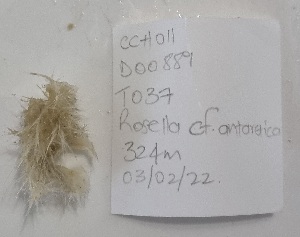 CCH011
D00889
T037
Rosella cf. antarctica
324m
03/02/22.